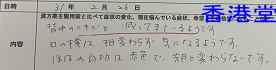 香港堂
日時 31年 2月 26日
漢方薬を服用前と比べて症状の変化、現在悩んでいる症状、希望
内容
背中のニキビも減ってきているようです。
口の横は相変わらず気になるようです。
ほほの白班は赤色で、前と変わらないです。